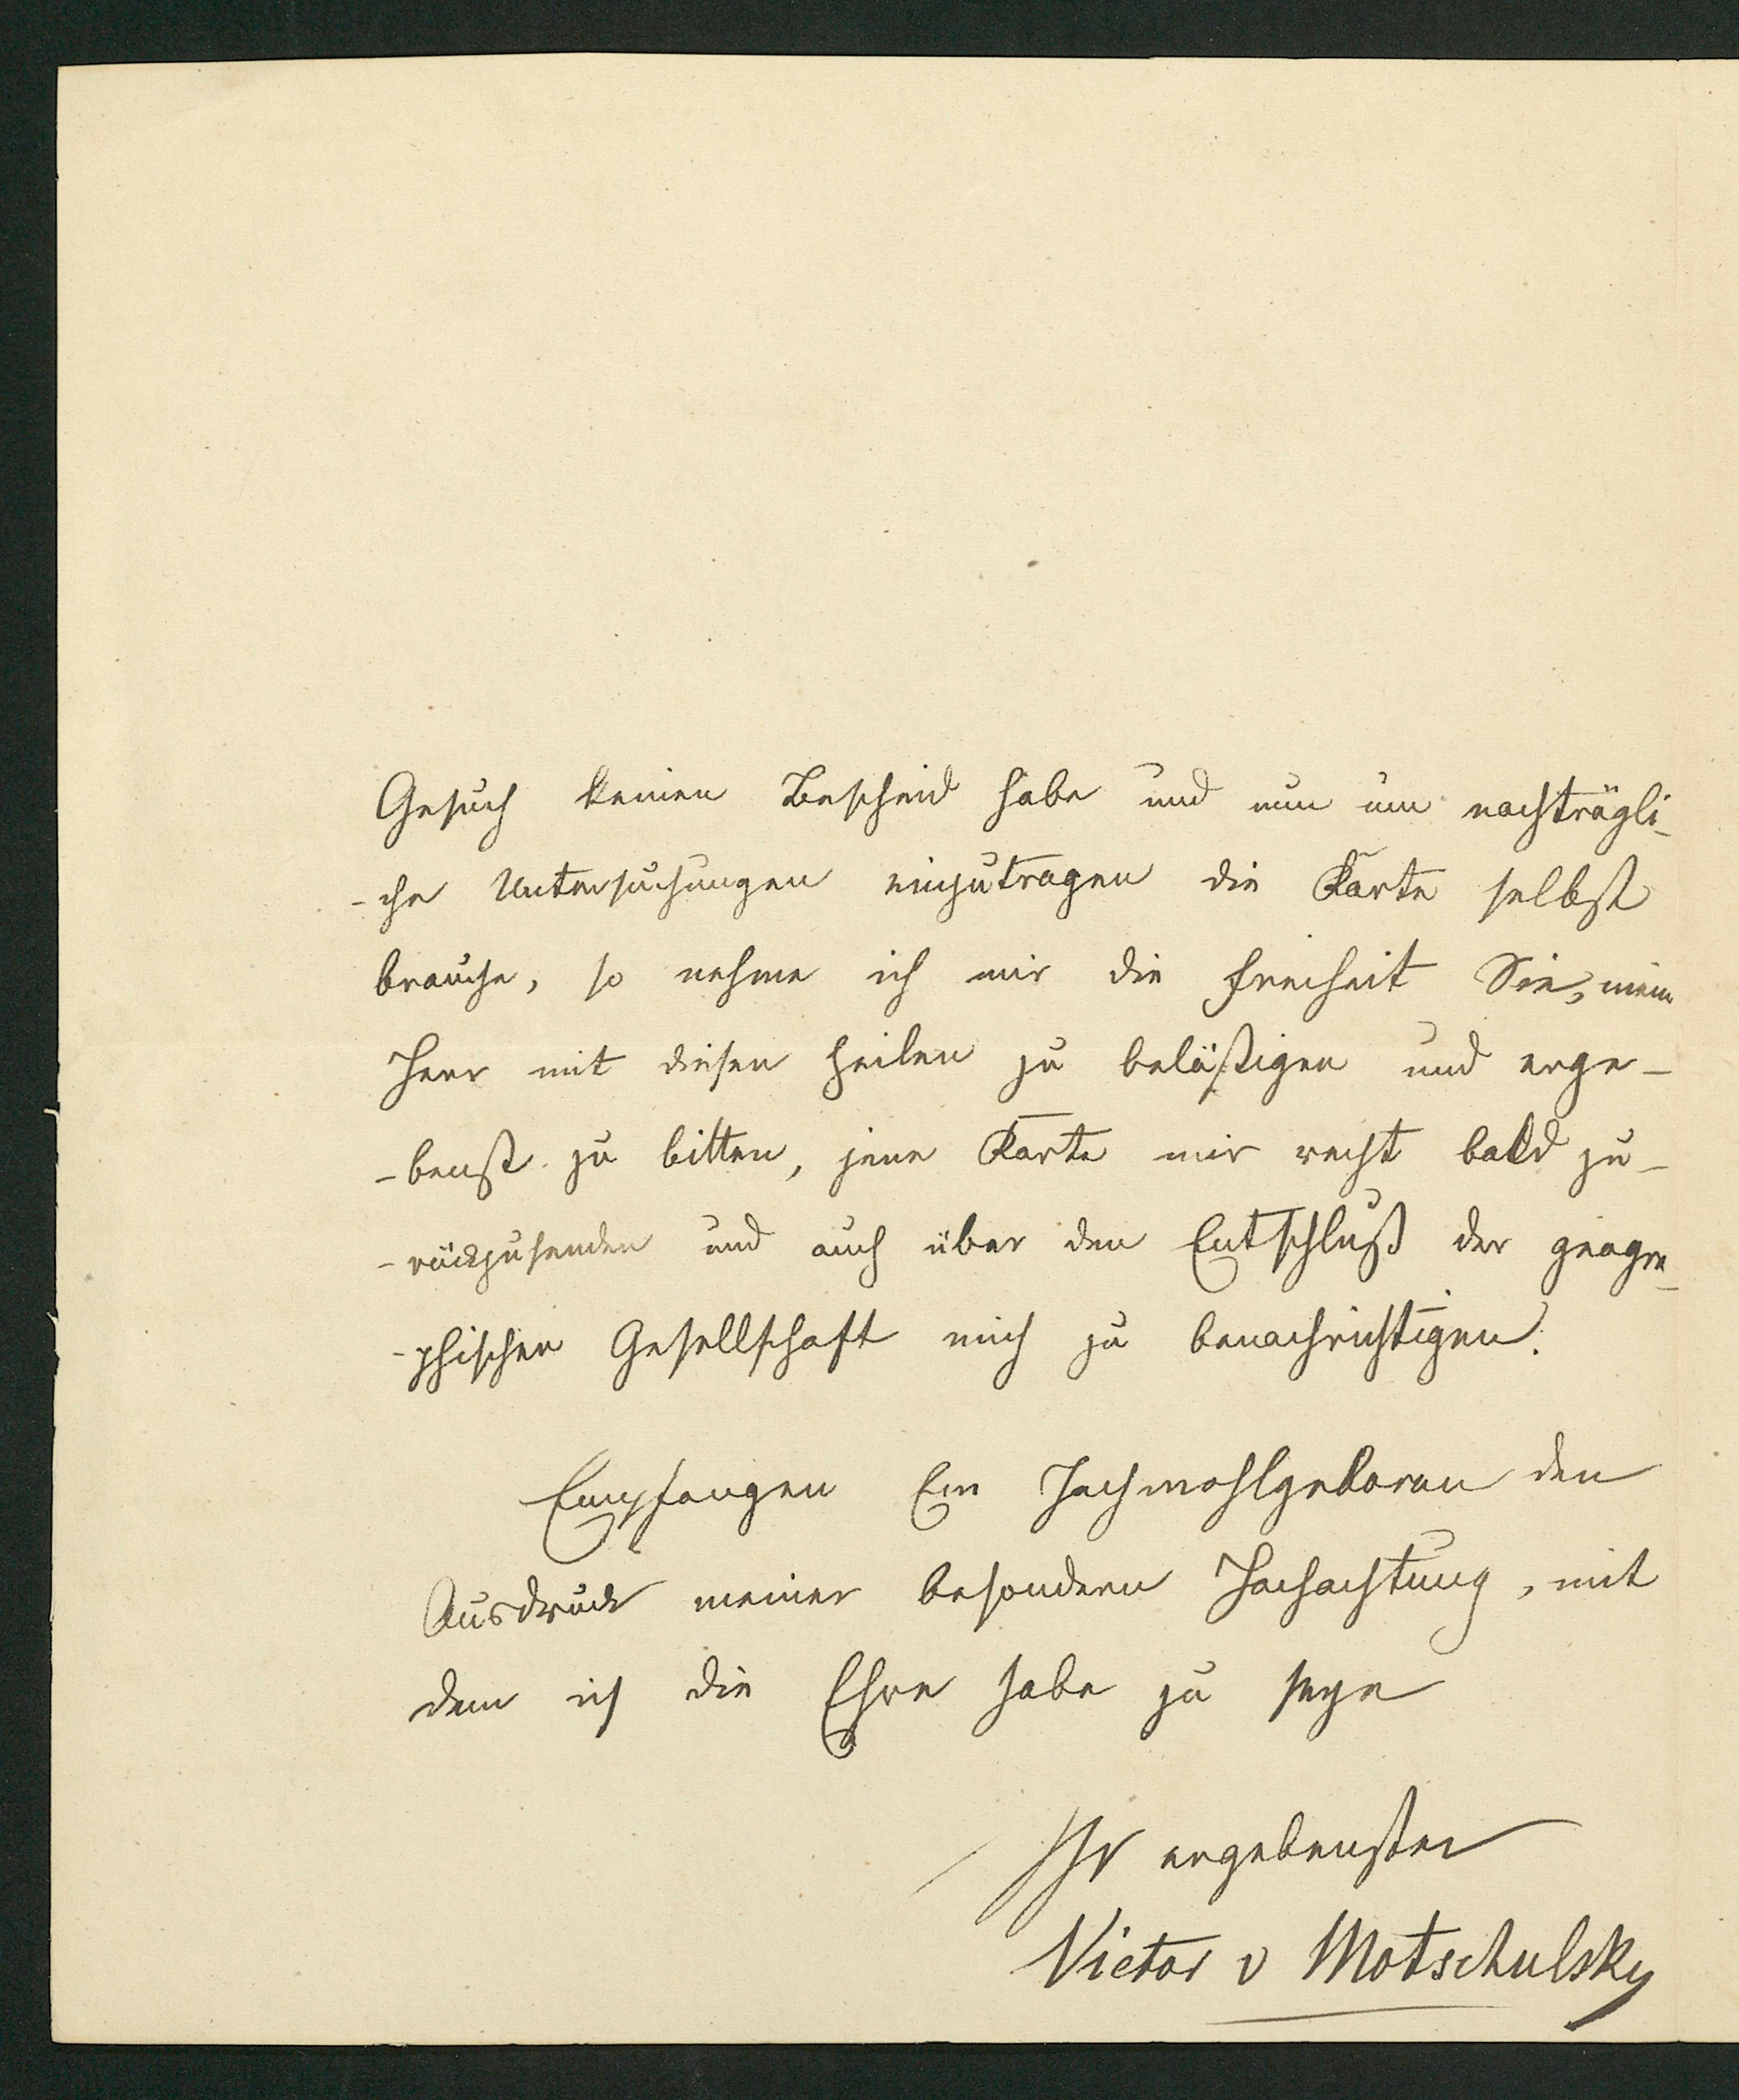 Gesuch keinen Bescheid habe und nun um nachträgli-
-che Untersuchungen einzutragen die Karte selbst
brauche, so nehme ich mir die Freiheit Sie, mein
Herr mit diesen Zeilen zu belästigen und erge-
-benst zu bitten, jene Karte mir recht bald zu-
-rückzusenden und auch über den Entschluß der geogra-
-phischen Gesellschaft mich zu benachrichtigen.
Empfangen Ew Hochwohlgeboren den
Ausdruck meiner besondern Hochachtung, mit
dem ich die Ehre habe zu seyn
Ihr ergebenster
Victor v Motschulsky